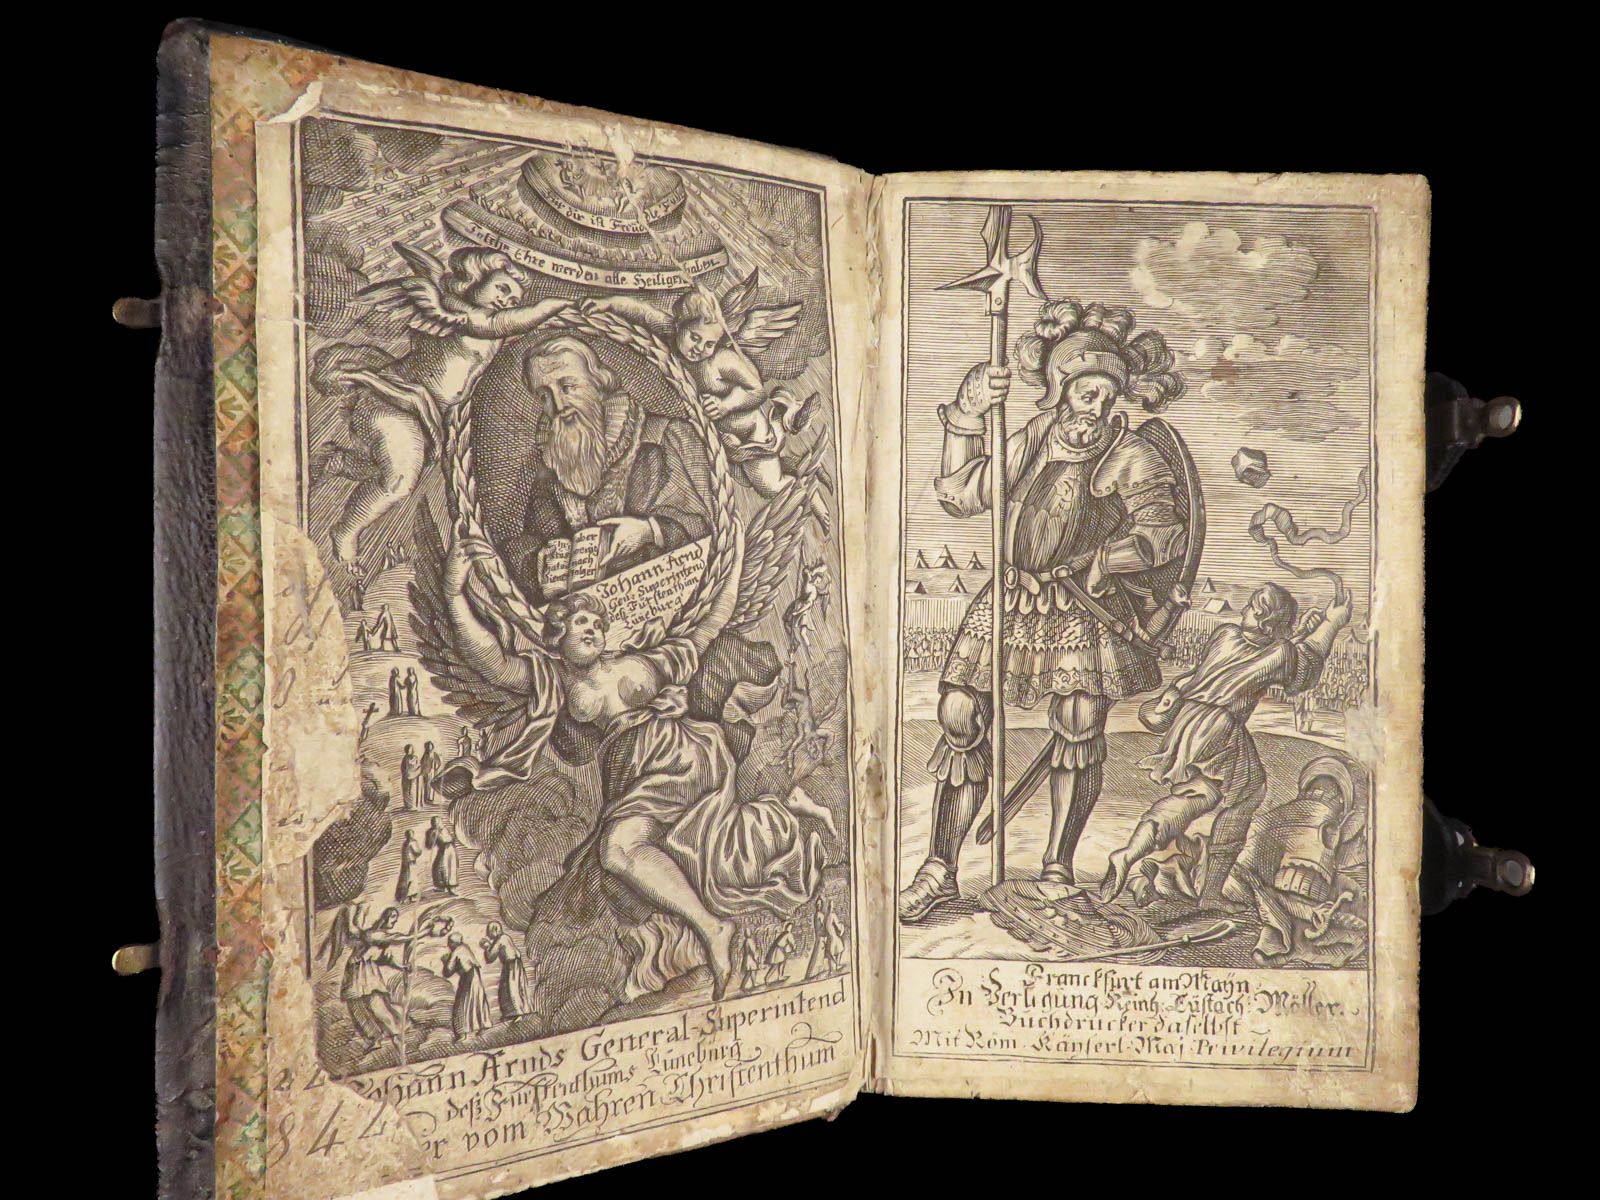 dir ist Freud
Solche Ehre werden alle Heiligen haben
Johann Arnd
Gen: Superintend
deß Fürstenthum
Lüneburg
Johann Arnds General-Superintend
deß Fürstenthums Lüneburg
vom Wahren Christenthum
84
Franckfurt am Mayn
In Verligung Heinh: Eüstach: Möller.
Buchdrucker daselbst
Mit Röm: Käyserl: Maj: Privilegium